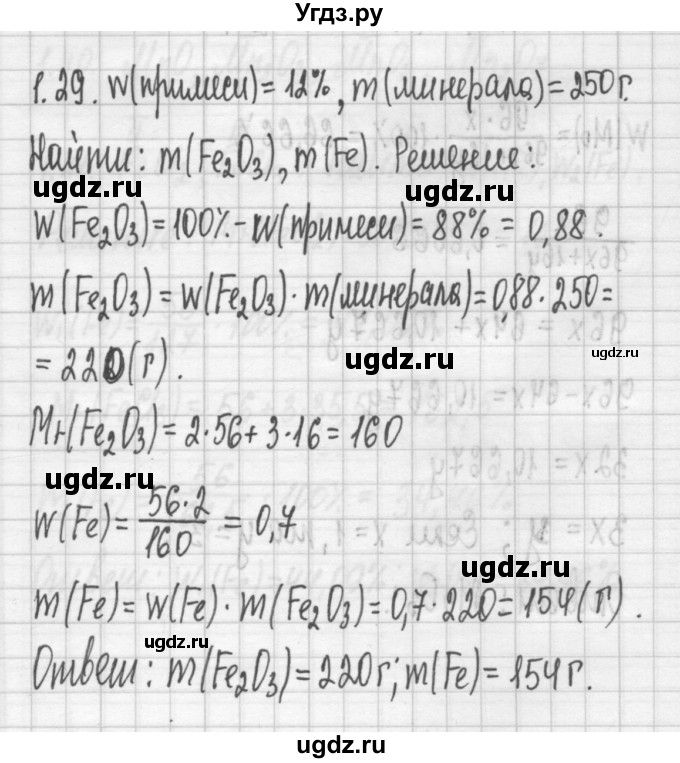 Угдз.ру
1.29. w(примеси) = 12%, m(минерала) = 250г.
Найти: m(Fe₂O₃), m(Fe). Решение:
ugdz.ru ugdz.ru
w(Fe₂O₃) = 100% - w(примеси) = 88% = 0,88.
m(Fe₂O₃) = w(Fe₂O₃) · m(минерала) = 088 · 250 =
= 220(г).
ugdz.ru ugdz.ru
Mr(Fe₂O₃) = 2·56 + 3·16 = 160
ugdz.ru
w(Fe) = 56·2/160 = 0,7
ugdz.ru
m(Fe) = w(Fe) · m(Fe₂O₃) = 0,7 · 220 = 154(г).
ugdz.ru
Ответ: m(Fe₂O₃) = 220г; m(Fe) = 154г.
ugdz.ru